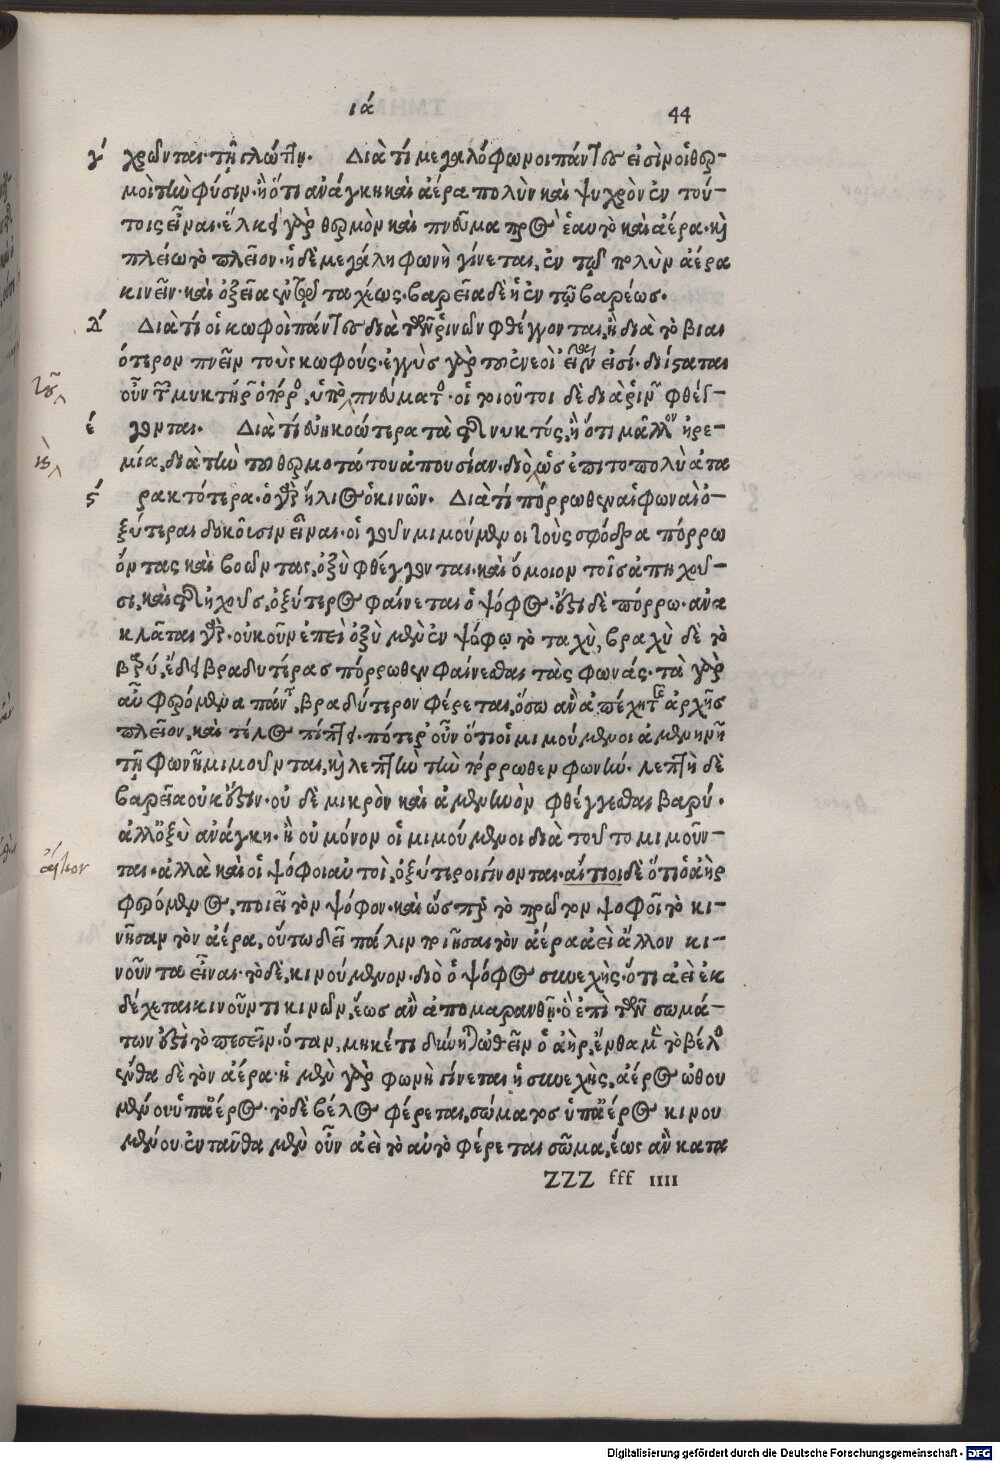 ιά
44
γ́ χρῶνται τῇ γλώττῃ. Διὰ τί μεγαλόφωνοι πάντες εἰσὶν οἱ θερ-
μοὶ τὴν φύσιν· ἢ ὅτι ἀνάγκη καὶ ἀέρα πολὺν καὶ ψυχρὸν ἐν τού-
τοις εἶναι· ἕλκει γὰρ θερμὸν καὶ πνεῦμα πρὸς ἑαυτὸ καὶ ἀέρα· καὶ
πλείω τὸ πλεῖον· ἡ δὲ μεγάλη φωνὴ γίνεται, ἐν τῷ πολὺν ἀέρα
κινεῖν· καὶ ὀξεῖα ἐν τῷ ταχέως· βαρεῖα δὲ ἡ ἐν τῷ βαρέως.
δ́ Διὰ τί οἱ κωφοὶ πάντες διὰ τῶν ῥινῶν φθέγγονται, ἢ διὰ τὸ βιαι
ότερον πνεῖν τοὺς κωφούς· ἐγγὺς γὰρ τοῦ ἐνεοὶ εἶναι εἰσί· διίσταται
οὖν τῶν μυκτήρων ὁ πόρος, ὑπὸ πνεύματος· οἱ τοιοῦτοι δὲ διὰ ῥινῶν φθέγ-
τοῦ
έ γονται. Διὰ τί εὐηκοώτερα τὰ τῆς νυκτός, ἢ ὅτι μᾶλλον ἠρε-
μία, διὰ τὴν τοῦ θερμοτάτου ἀπουσίαν· διὸ, ὡς ἐπιτοπολὺ ἀτα
ϛ́ ρακτότερα· ὁ γὰρ ἥλιος ὁ κινῶν. Διὰ τί πόρρωθεν αἱ φωναὶ ὀ-
ξύτεραι δοκοῦσιν εἶναι· οἱ γοῦν μιμούμενοι τοὺς σφόδρα πόρρω
ὄντας καὶ βοῶντας, ὀξὺ φθέγγονται· καὶ ὅμοιον τοῖς ἀπηχοῦ-
σι, καὶ τῆς ἠχοῦς, ὀξύτερος φαίνεται ὁ ψόφος· ὅς ἐστι δὲ πόρρω· ἀνα
κλᾶται γὰρ· οὐκοῦν ἐπεὶ ὀξὺ μὲν ἐν ψόφῳ τὸ ταχὺ, βραχὺ δὲ τὸ
βαρύ, ἔδει βραδυτέρας πόρρωθεν φαίνεσθαι τὰς φωνάς· τὰ γὰρ
αὖ φερόμενα πάντα, βραδύτερον φέρεται, ὅσω ἂν ἀπέχη τῆς ἀρχῆς
πλεῖον, καὶ τέλος πίπτει· πότερ οὖν ὅτι οἱ μιμούμενοι ἀμενηνῇ
τῇ φωνῇ μιμοῦνται, καὶ λεπτὴν τὴν πόρρωθεν φωνήν· λεπτὴ δὲ
βαρεῖα οὐκ ἔστιν· οὐ δὲ μικρὸν καὶ ἀμενηνὸν φθέγγεσθαι βαρύ·
ἀλλ' ὀξὺ ἀνάγκη· ἢ οὐ μόνον οἱ μιμούμενοι διὰ τοῦτο μιμοῦν-
αἴτιον
ται· ἀλλὰ καὶ οἱ ψόφοι αὐτοὶ, ὀξύτεροι γίνονται· αἴτιοι δὲ ὅτι ὁ ἀὴρ
φερόμενος, ποιεῖ τὸν ψόφον· καὶ ὥσπερ τὸ πρῶτον ψοφοῖ τὸ κι-
νῆσαν τὸν ἀέρα, οὕτω δεῖ πάλιν ποιῆσαι τὸν ἀέρα ἀεὶ ἄλλον κι-
νοῦντα εἶναι· τὸ δὲ, κινούμενον· διὸ ὁ ψόφος συνεχής· ὅτι ἀεὶ ἐκ
δέχεται κινοῦντι κινῶν, ἕως ἂν ἀπομαρανθῇ· ὃ ἐπὶ τῶν σωμά-
των ἐστὶ τὸ πεσεῖν· ὅταν, μηκέτι δύνηται ὠθεῖν ὁ ἀὴρ, ἔνθα μὲν τὸ βέλος
ἔνθα δὲ τὸν ἀέρα· ἡ μὲν γὰρ φωνὴ γίνεται ἡ συνεχὴς, ἀέρος ὠθου
μένου ὑπ' ἀέρος· τὸ δὲ βέλος φέρεται, σώματος ὑπ' ἀέρος κινου
μένου· ἐνταῦθα μὲν οὖν ἀεὶ τὸ αὐτὸ φέρεται σῶμα, ἕως ἂν κατα
ZZZ fff iiii
Digitalisierung gefördert durch die Deutsche Forschungsgemeinschaft - DFG